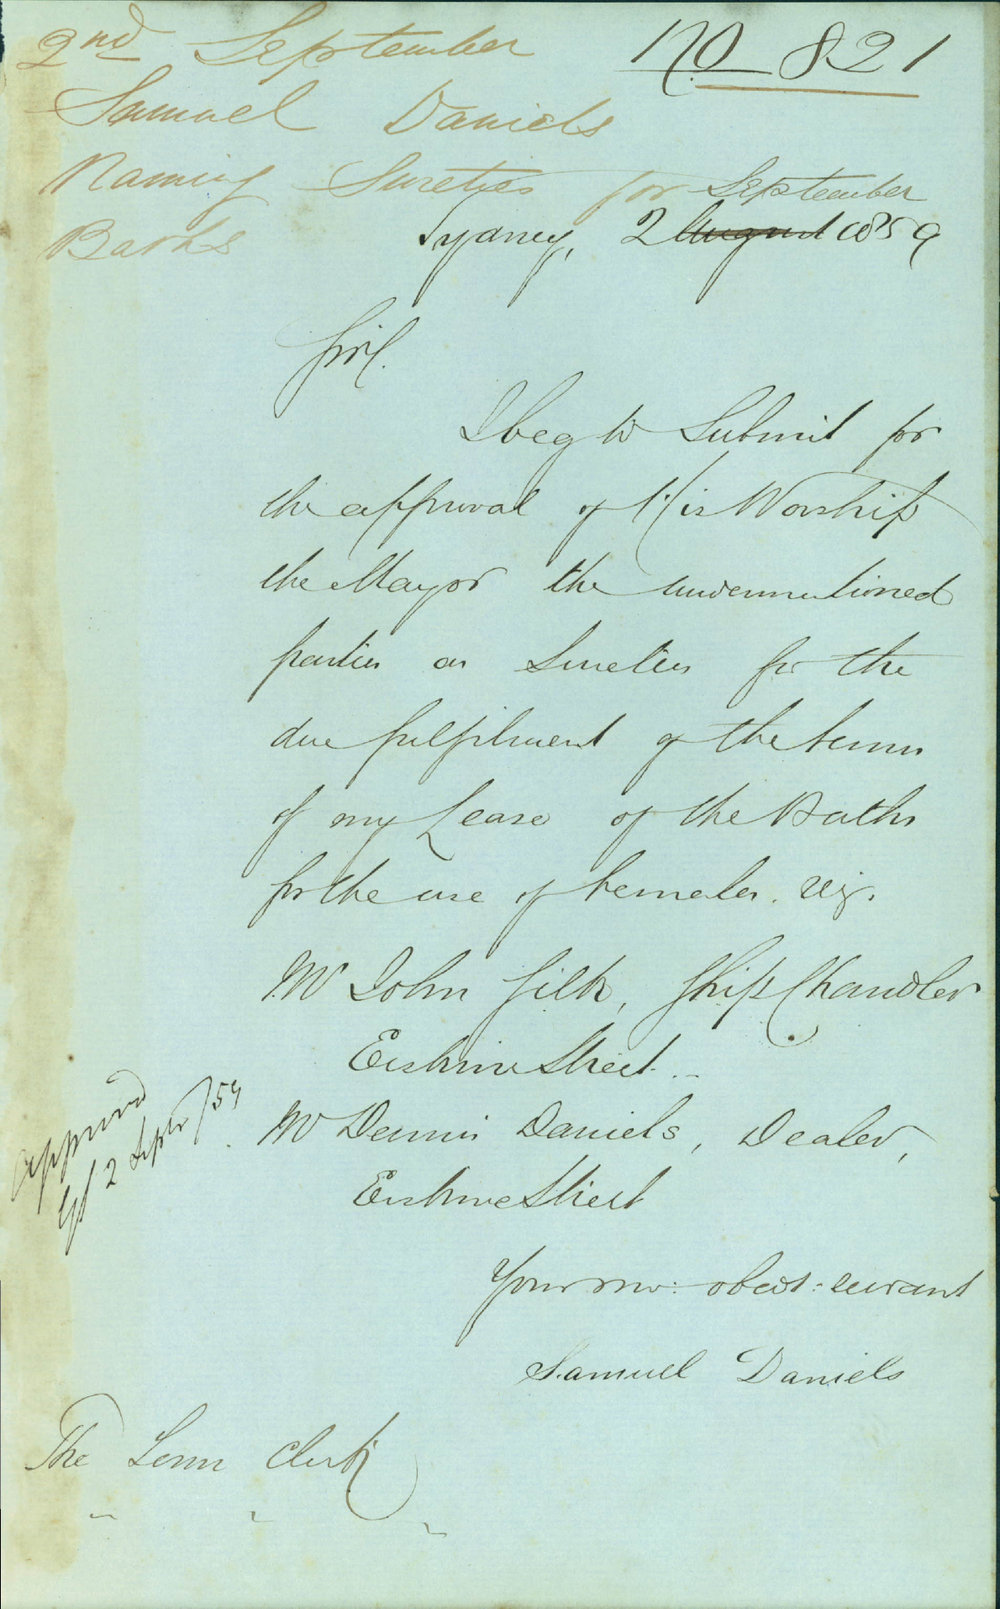 2nd September
No 821
Samuel Daniels
Naming Sureties for September
Baths
Sydney, 2 August 1859
Sir,
I beg to Submit for
the approval of His Worship
the Mayor the undermentioned
parties as Sureties for the
due fulfilment of the terms
of my Lease of the Baths
for the use of females. viz.
Mr John Silk, Ship Chandler
Erskine Street
Mr Dennis Daniels, Dealer,
Erskine Street
approved
2 Septr /59
Your mo: obedt: servant
Samuel Daniels
The Town Clerk